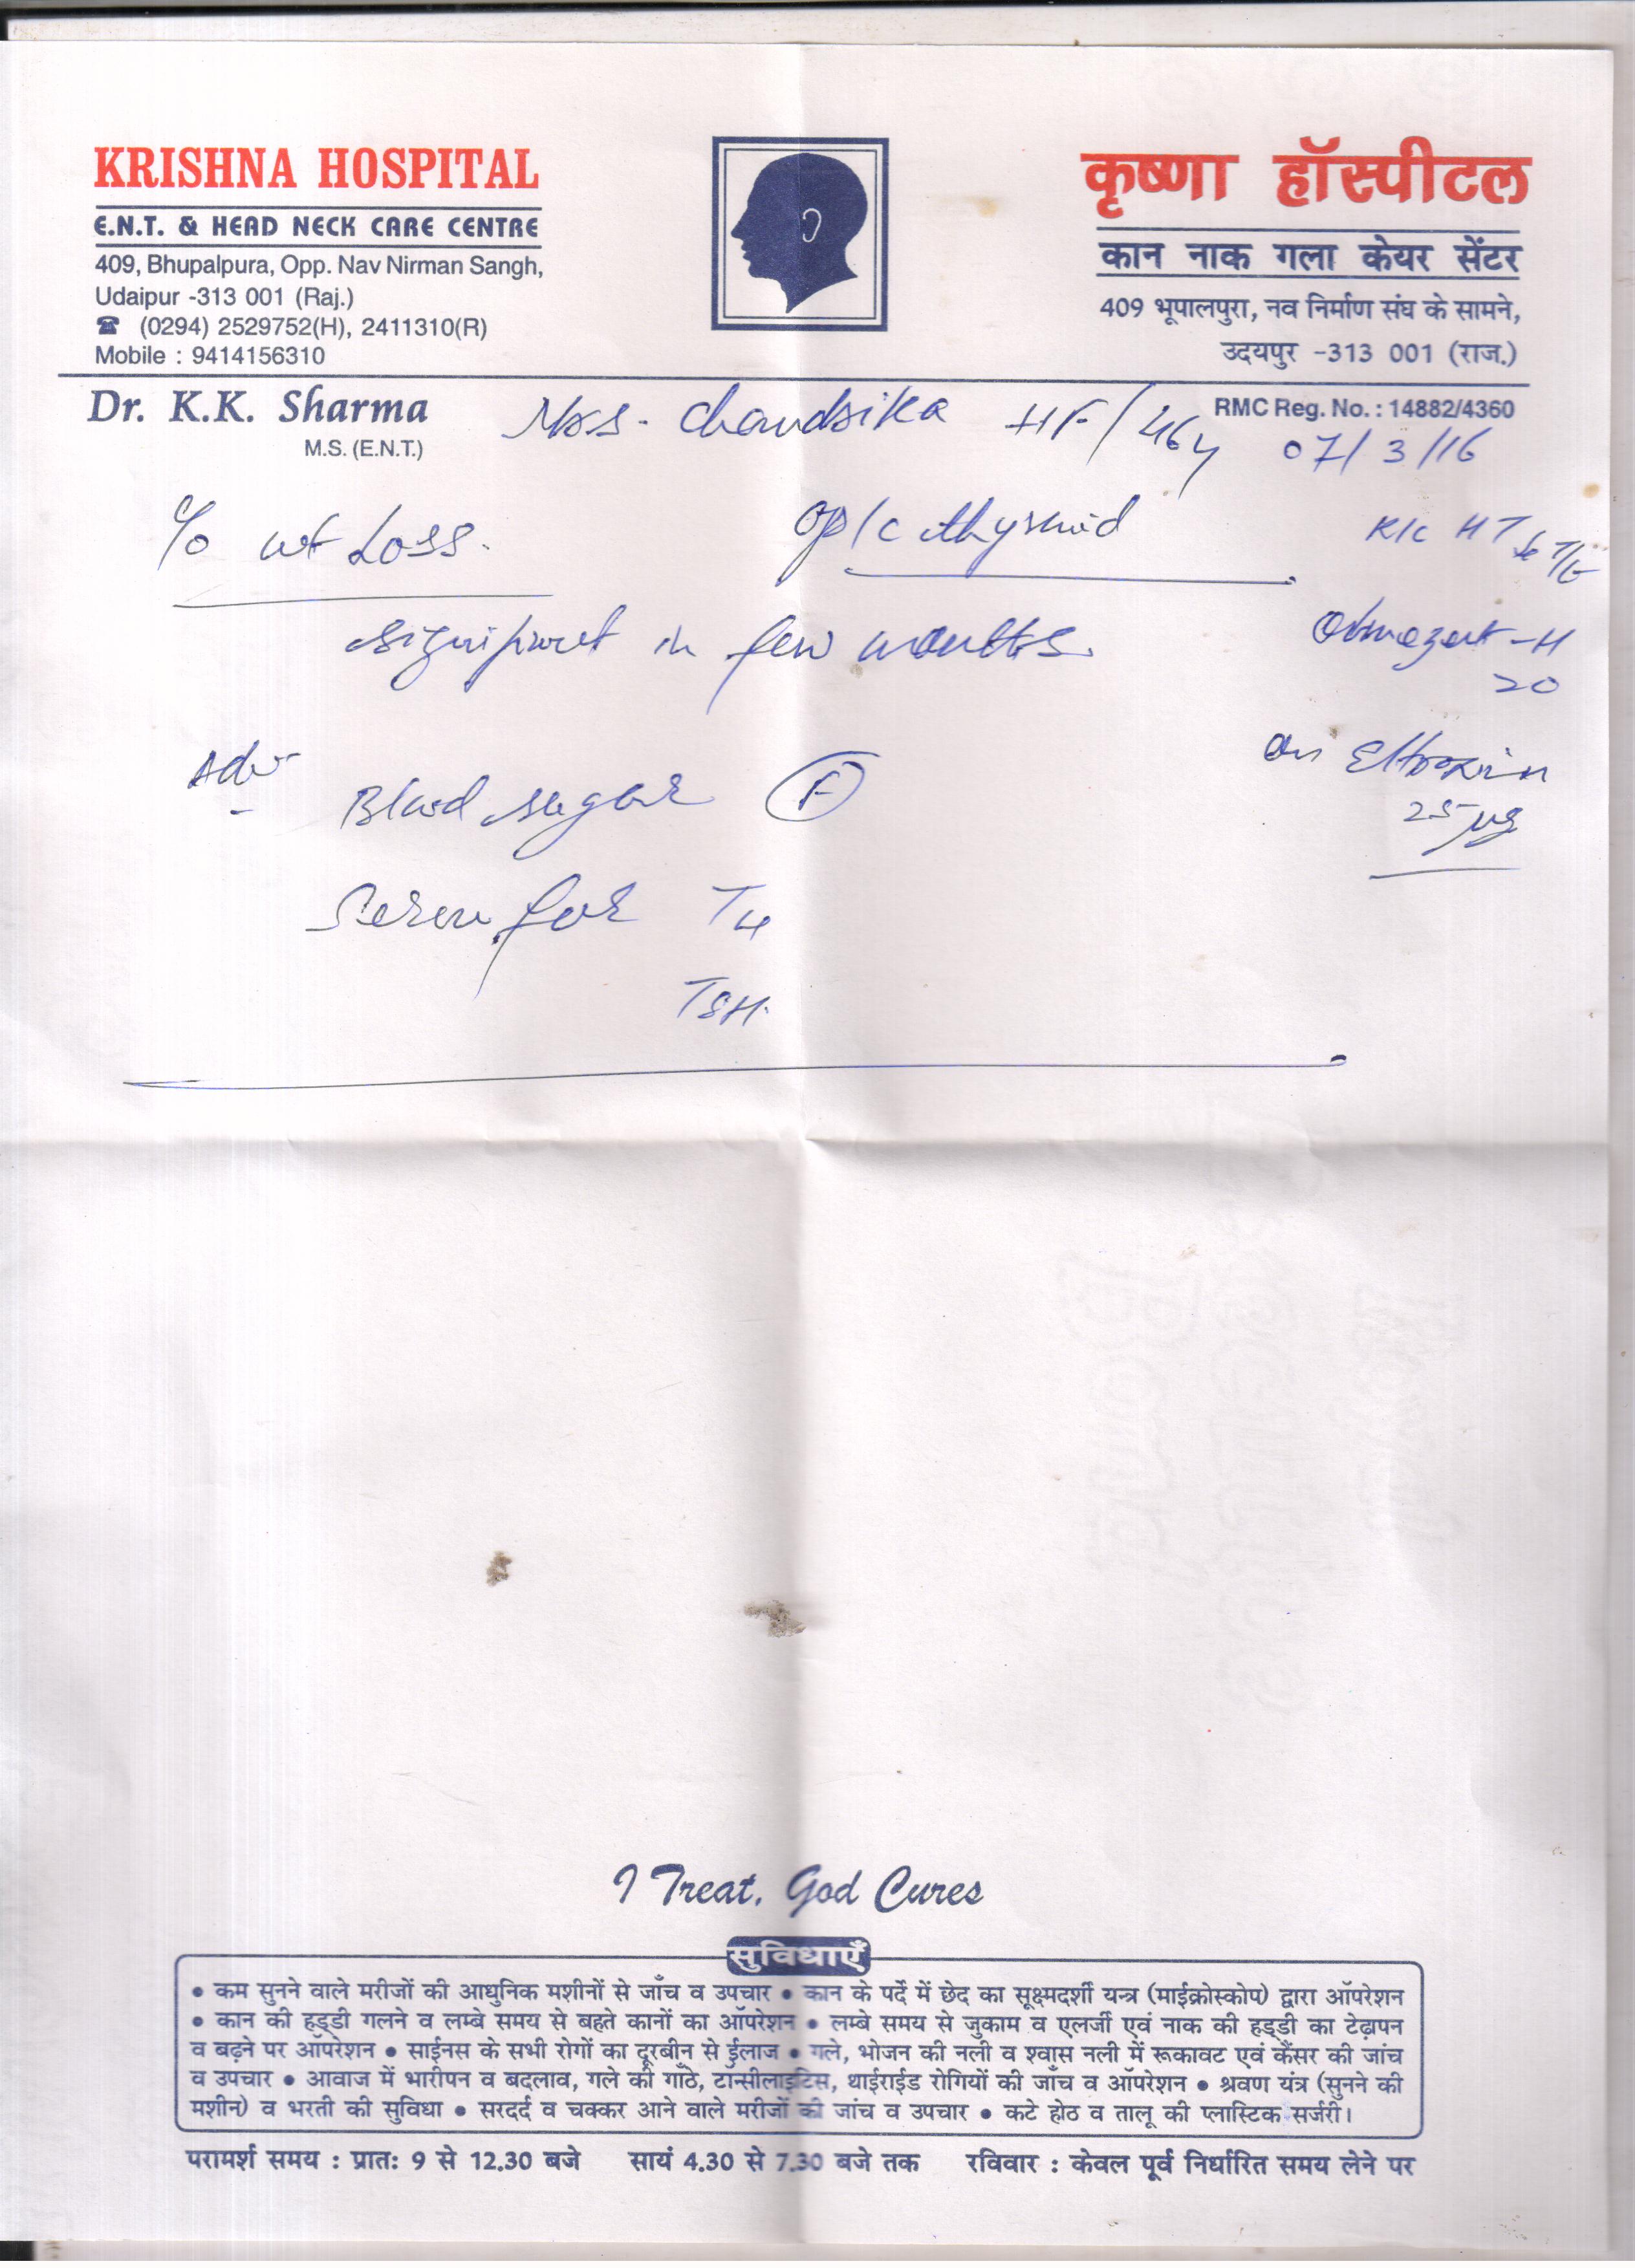 KRISHNA HOSPITAL
E.N.T. & HEAD NECK CARE CENTRE
409, Bhupalpura, Opp. Nav Nirman Sangh,
Udaipur -313 001 (Raj.)
☎ (0294) 2529752(H), 2411310(R)
Mobile : 9414156310
कृष्णा हॉस्पीटल
कान नाक गला केयर सेंटर
409 भूपालपुरा, नव निर्माण संघ के सामने,
उदयपुर -313 001 (राज.)
Dr. K.K. Sharma
M.S. (E.N.T.)
RMC Reg. No. : 14882/4360
Mrs. Chandrika HF/46y 07/3/16
C/o wt Loss. op/c thyroid K/c HT
significant in few months.
Olmezest-H
20
Adv
Blood sugar F
on Eltroxin
25 µg
Serum for T4
TSH.
I Treat, God Cures
सुविधाएँ
• कम सुनने वाले मरीजों की आधुनिक मशीनों से जाँच व उपचार • कान के पर्दे में छेद का सूक्ष्मदर्शी यन्त्र (माईक्रोस्कोप) द्वारा ऑपरेशन
• कान की हड्डी गलने व लम्बे समय से बहते कानों का ऑपरेशन • लम्बे समय से जुकाम व एलर्जी एवं नाक की हड्डी का टेढ़ापन
व बढ़ने पर ऑपरेशन • साईनस के सभी रोगों का दूरबीन से ईलाज • गले, भोजन की नली व श्वास नली में रूकावट एवं कैंसर की जांच
व उपचार • आवाज में भारीपन व बदलाव, गले की गाँठे, टॉन्सीलाइटिस, थाईराईड रोगियों की जाँच व ऑपरेशन • श्रवण यंत्र (सुनने की
मशीन) व भरती की सुविधा • सरदर्द व चक्कर आने वाले मरीजों की जांच व उपचार • कटे होठ व तालू की प्लास्टिक सर्जरी।
परामर्श समय : प्रातः 9 से 12.30 बजे सायं 4.30 से 7.30 बजे तक रविवार : केवल पूर्व निर्धारित समय लेने पर